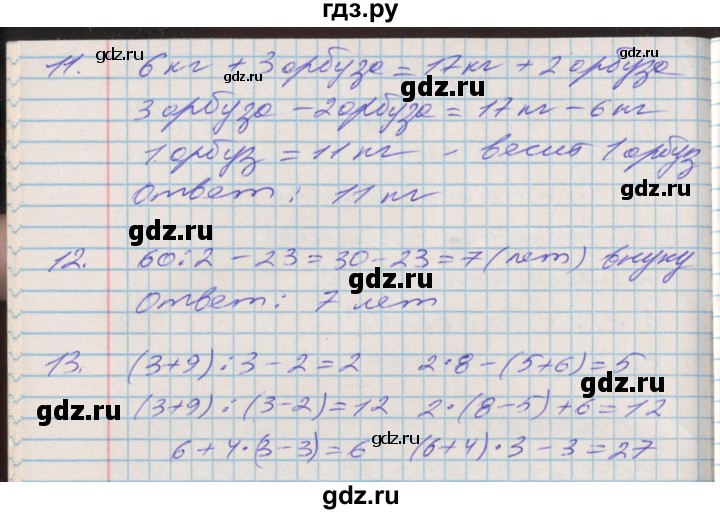 гдз.ру
11. 6 кг + 3 арбуза = 17 кг + 2 арбуза
gdz.ru
gdz.ru
gdz.ru
3 арбуза - 2 арбуза = 17 кг - 6 кг
1 арбуз = 11 кг - весит 1 арбуз
Ответ: 11 кг
gdz.ru
gdz.ru
12. 60:2 - 23 = 30 - 23 = 7 (лет) внуку
Ответ: 7 лет
gdz.ru
gdz.ru
13. (3+9):3-2=2 2·8-(5+6)=5
gdz.ru
gdz.ru
(3+9):(3-2)=12 2·(8-5)+6=12
gdz.ru
6+4·(3-3)=6 (6+4)·3-3=27
gdz.ru
gdz.ru